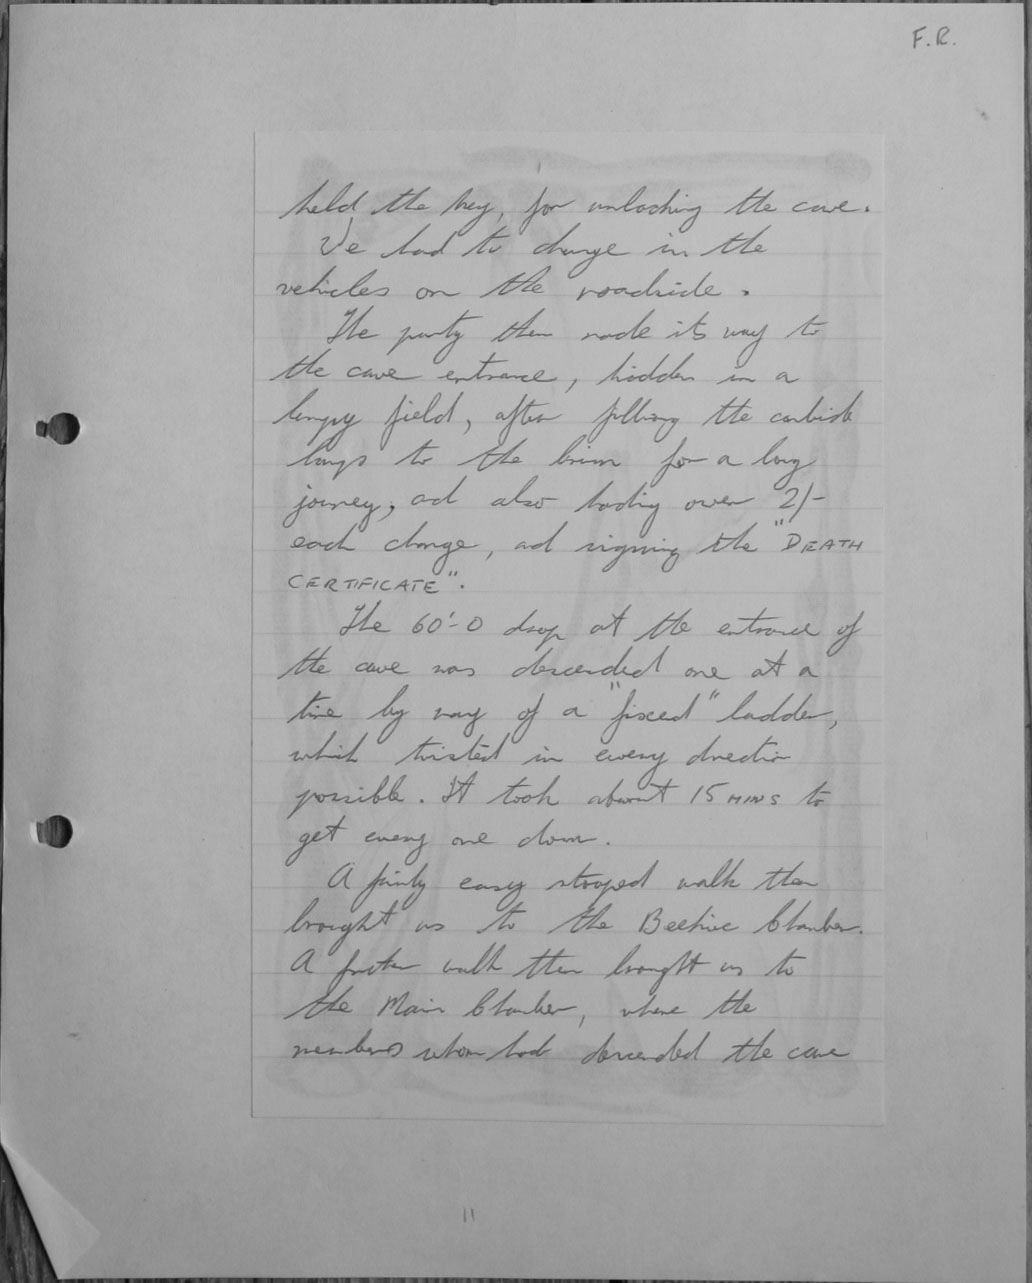 F.R.
held the key, for unlocking the cave.
We had to change in the
vehicles on the roadside.
The party then made its way to
the cave entrance, hidden in a
lumpy field, after filling the carbide
lamps to the brim for a long
jouney, and also handing over 2/-
each change, and signing the "DEATH
CERTIFICATE".
The 60'-0 drop at the entrance of
the cave was descended one at a
time by way of a "fixed" ladder,
which twisted in every direction
possible. It took about 15 MINS to
get every one down.
A fairly easy stooped walk then
brought us to the Beehive Chamber.
A further walk then brought us to
the Main Chamber, where the
members whom had descended the cave
11